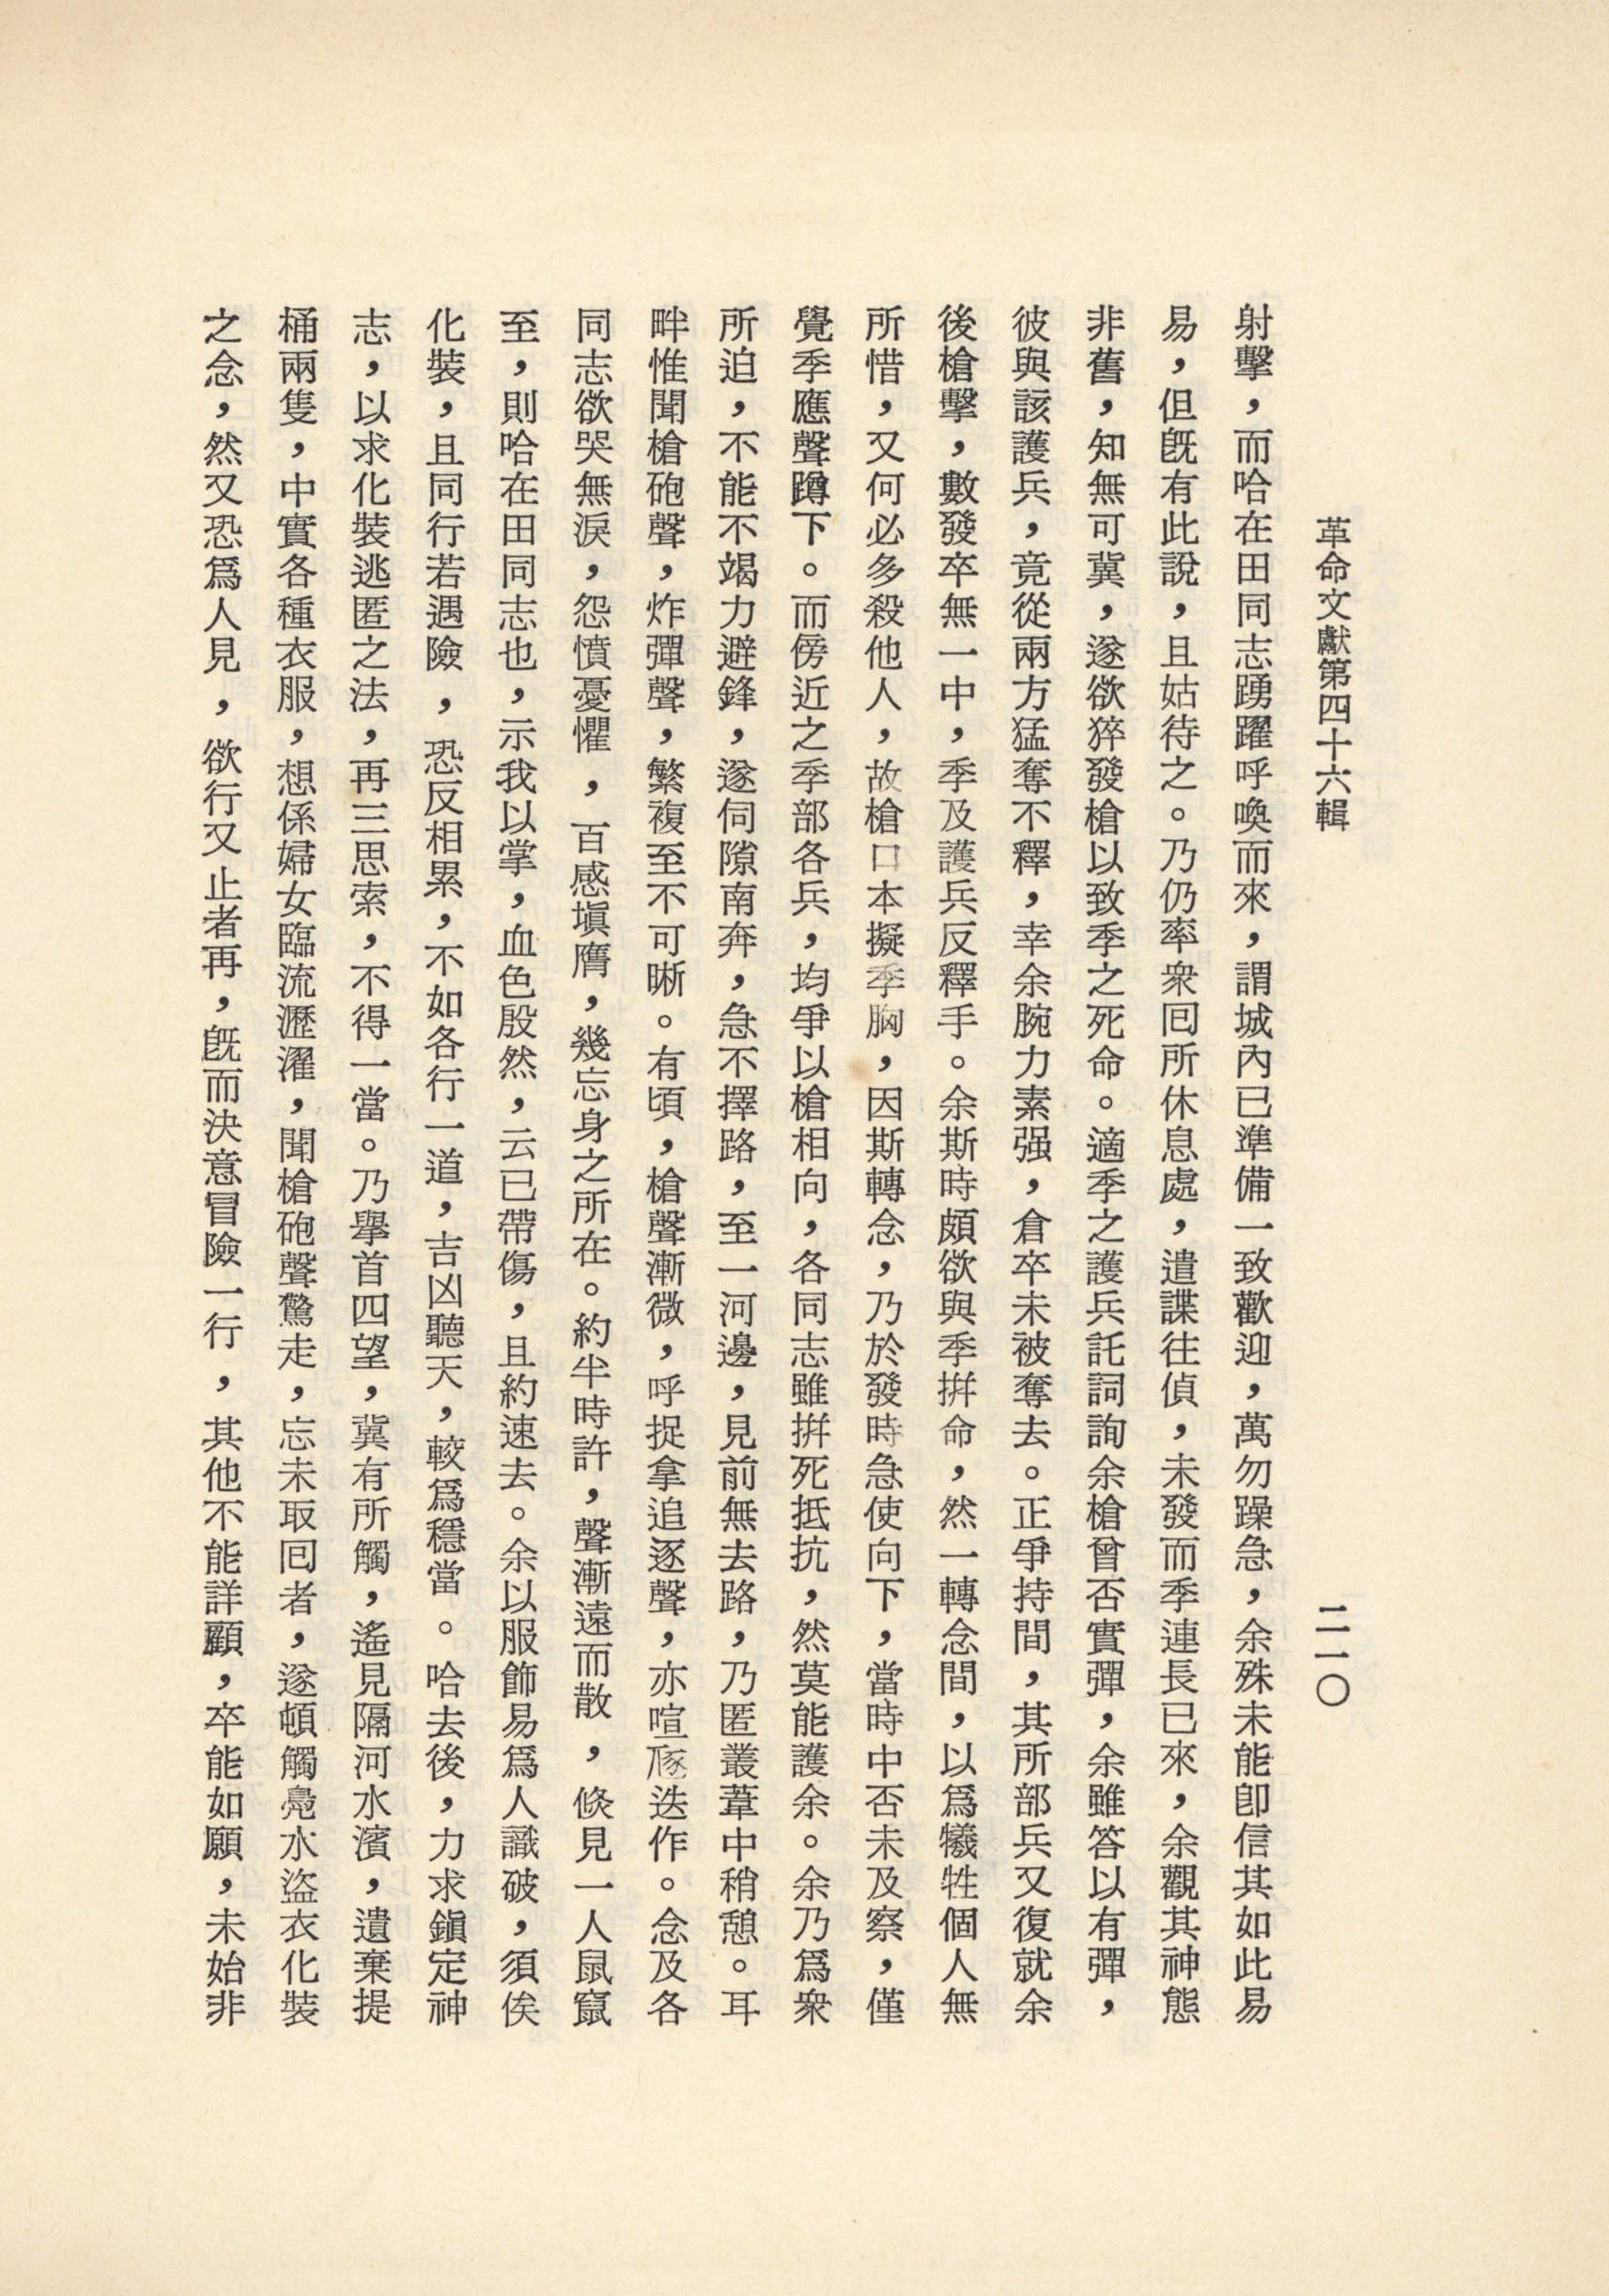 革命文獻第四十六輯
二一〇
射擊，而哈在田同志踴躍呼喚而來，謂城內已準備一致歡迎，萬勿躁急，余殊未能卽信其如此易
易，但旣有此說，且姑待之。乃仍率衆囘所休息處，遣諜往偵，未發而季連長已來，余觀其神態
非舊，知無可冀，遂欲猝發槍以致季之死命。適季之護兵託詞詢余槍曾否實彈，余雖答以有彈，
彼與該護兵，竟從兩方猛奪不釋，幸余腕力素强，倉卒未被奪去。正爭持間，其所部兵又復就余
後槍擊，數發卒無一中，季及護兵反釋手。余斯時頗欲與季拚命，然一轉念間，以爲犧牲個人無
所惜，又何必多殺他人，故槍口本擬季胸，因斯轉念，乃於發時急使向下，當時中否未及察，僅
覺季應聲蹲下。而傍近之季部各兵，均爭以槍相向，各同志雖拚死抵抗，然莫能護余。余乃爲衆
所迫，不能不竭力避鋒，遂伺隙南奔，急不擇路，至一河邊，見前無去路，乃匿叢葦中稍憩。耳
畔惟聞槍砲聲，炸彈聲，繁複至不可晰。有頃，槍聲漸微，呼捉拿追逐聲，亦喧豗迭作。念及各
同志欲哭無淚，怨憤憂懼，百感塡膺，幾忘身之所在。約半時許，聲漸遠而散，倐見一人鼠竄
至，則哈在田同志也，示我以掌，血色殷然，云已帶傷，且約速去。余以服飾易爲人識破，須俟
化裝，且同行若遇險，恐反相累，不如各行一道，吉凶聽天，較爲穩當。哈去後，力求鎭定神
志，以求化裝逃匿之法，再三思索，不得一當。乃舉首四望，冀有所觸，遙見隔河水濱，遺棄提
桶兩隻，中實各種衣服，想係婦女臨流瀝濯，聞槍砲聲驚走，忘未取囘者，遂頓觸鳧水盜衣化裝
之念，然又恐爲人見，欲行又止者再，旣而決意冒險一行，其他不能詳顧，卒能如願，未始非